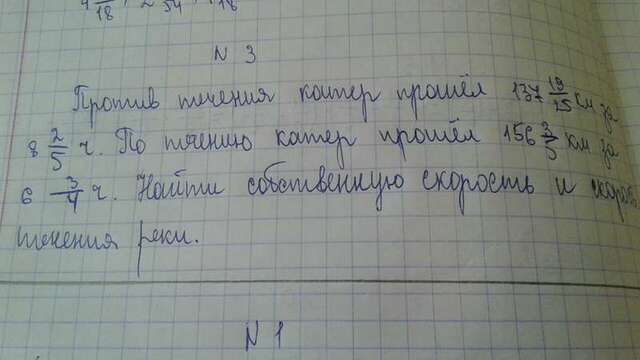 18 2 54 18
N 3
Против течения катер прошёл 137 19/25 км за
8 2/5 ч. По течению катер прошёл 156 3/5 км за
6 3/4 ч. Найти собственную скорость и скорость
течения реки.
N 1